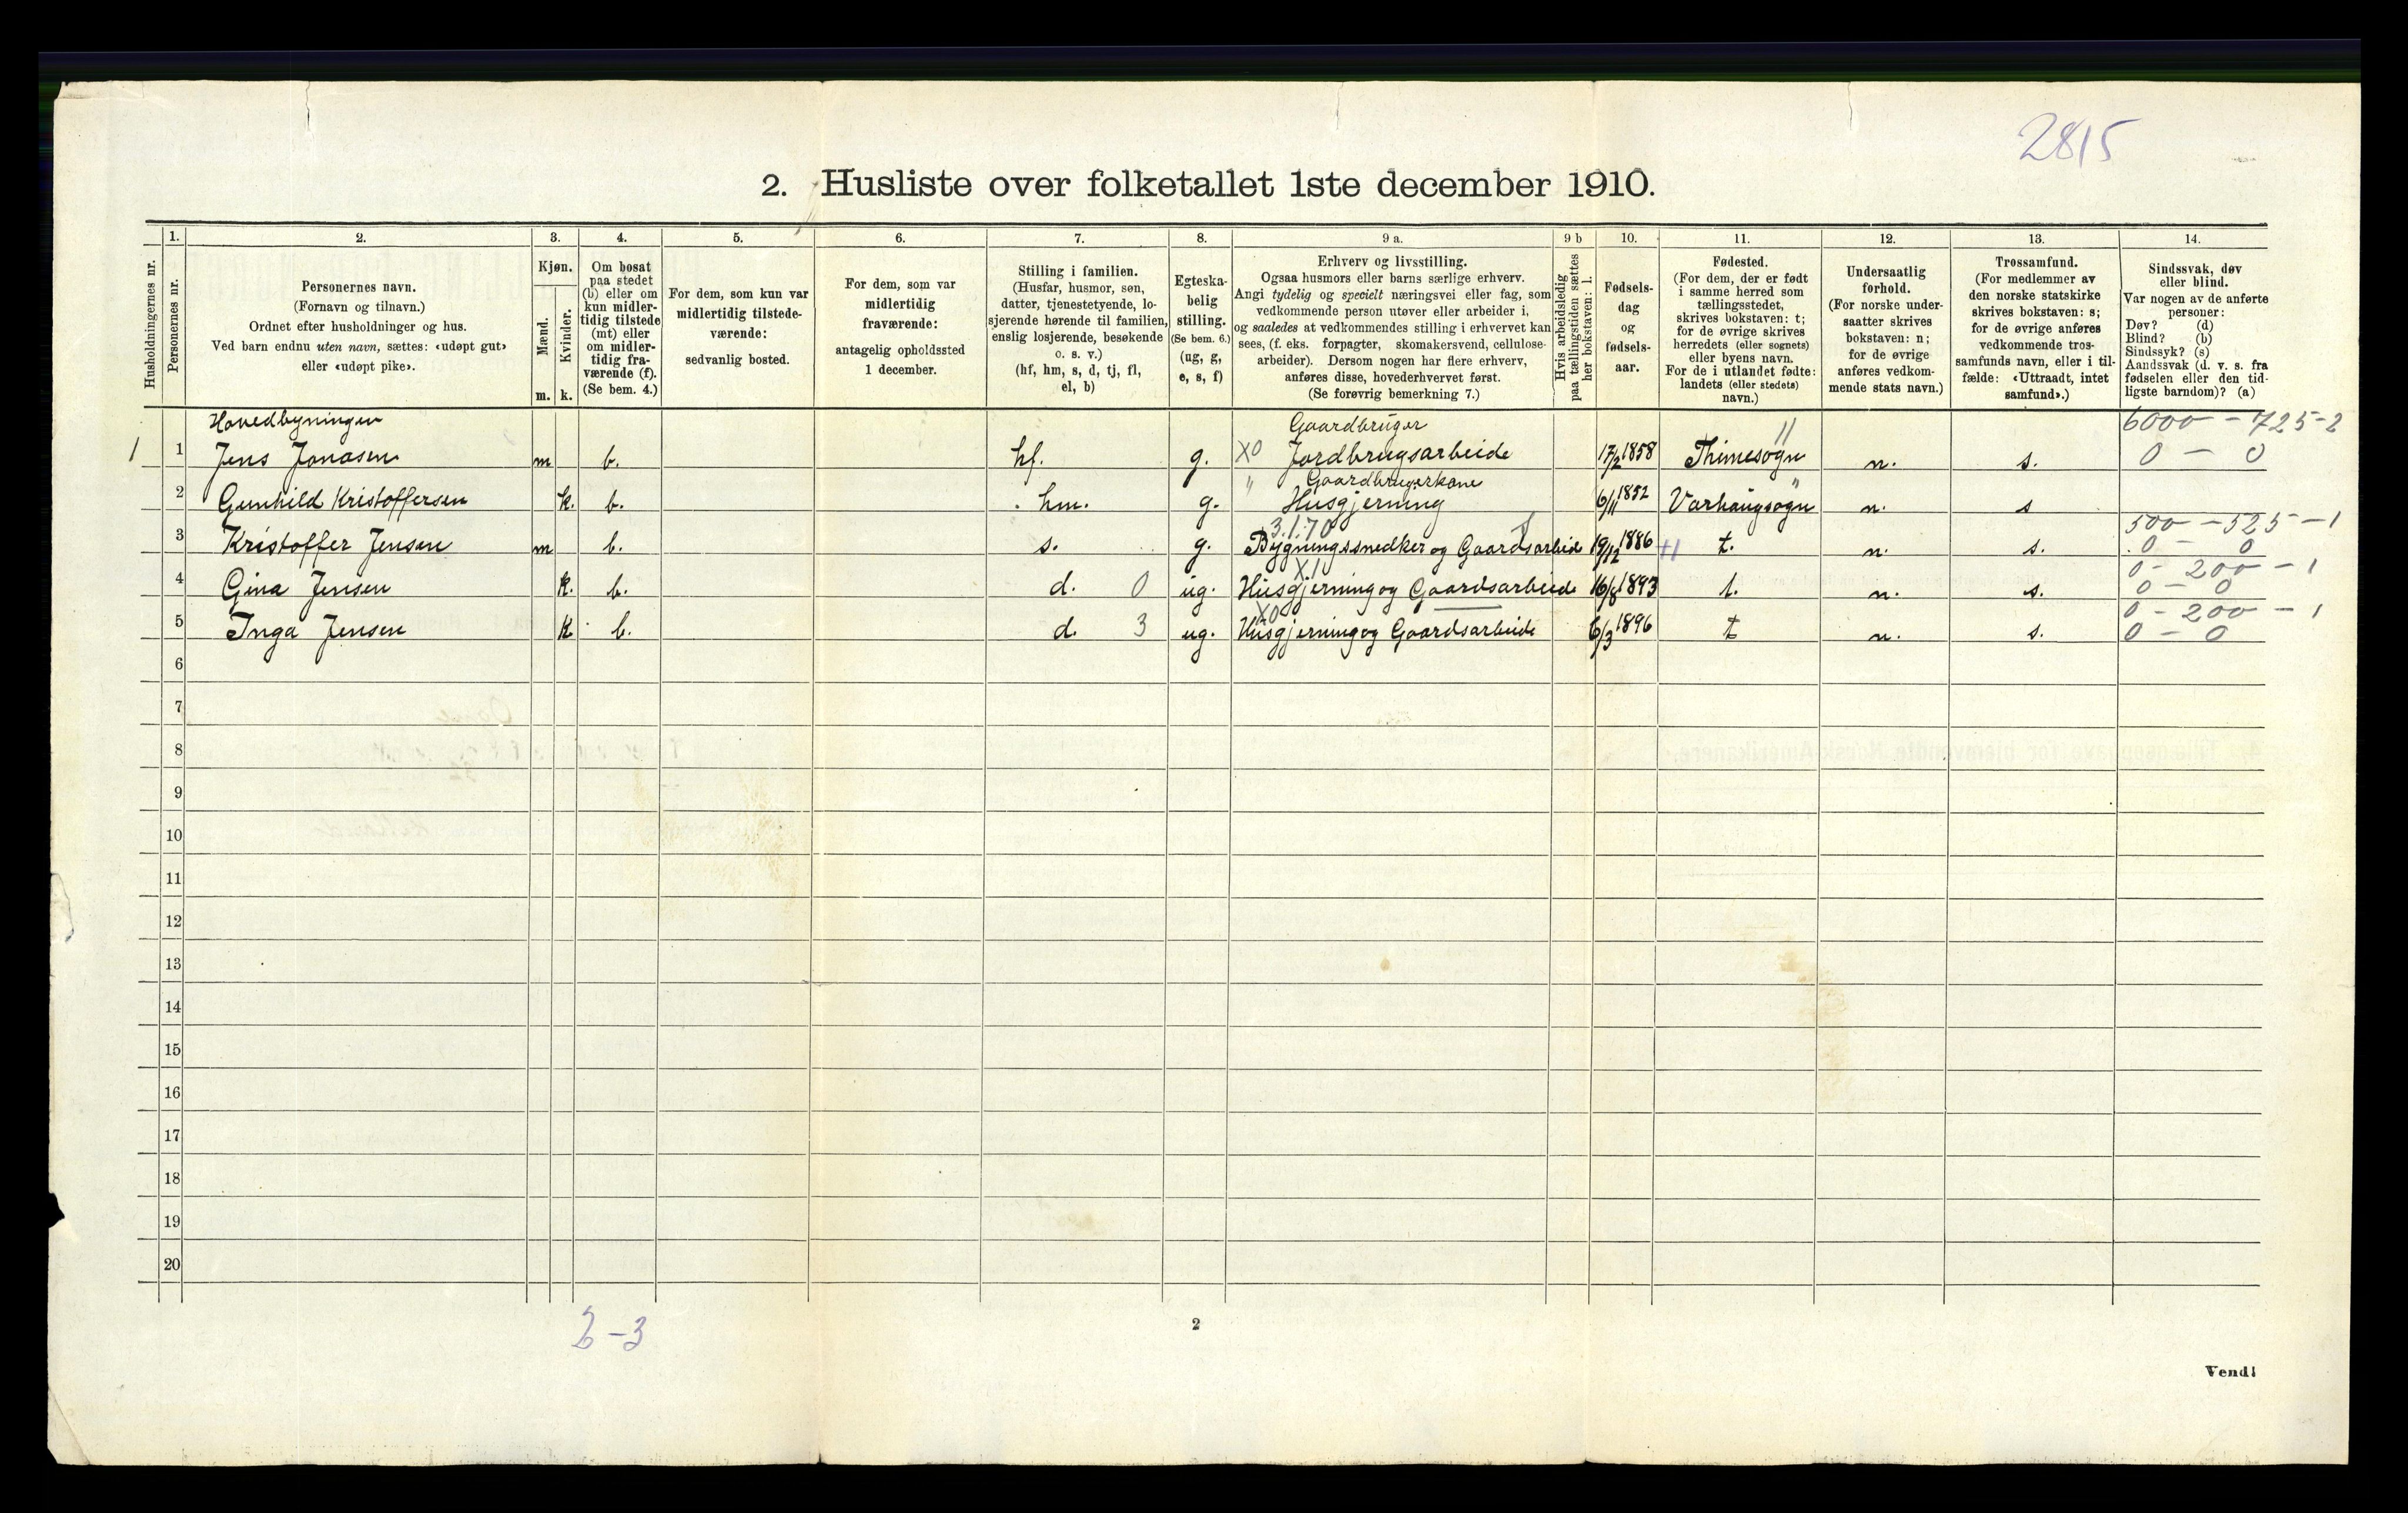 2815
2. Husliste over folketallet 1ste december 1910.
Husholdningernes nr.
1.
Personernes nr.
2.
Personernes navn.
(Fornavn og tilnavn.)
Ordnet efter husholdninger og hus.
Ved barn endnu uten navn, sættes: «udøpt gut»
eller «udøpt pike».
3.
Kjøn.
Mænd. Kvinder.
m. k.
4.
Om bosat
paa stedet
(b) eller om
kun midler-
tidig tilstede
(mt) eller
om midler-
tidig fra-
værende (f).
(Se bem. 4.)
5.
For dem, som kun var
midlertidig tilstede-
værende:
sedvanlig bosted.
6.
For dem, som var
midlertidig
fraværende:
antagelig opholdssted
1 december.
7.
Stilling i familien.
(Husfar, husmor, søn,
datter, tjenestetyende, lo-
sjerende hørende til familien,
enslig losjerende, besøkende
o. s. v.)
(hf, hm, s, d, tj, fl,
el, b)
8.
Egteska-
belig
stilling.
(Se bem. 6.)
(ug, g,
e, s, f)
9 a.
Erhverv og livsstilling.
Ogsaa husmors eller barns særlige erhverv.
Angi tydelig og specielt næringsvei eller fag, som
vedkommende person utøver eller arbeider i,
og saaledes at vedkommendes stilling i erhvervet kan
sees, (f. eks. forpagter, skomakersvend, cellulose-
arbeider). Dersom nogen har flere erhverv,
anføres disse, hovederhvervet først.
(Se forøvrig bemerkning 7.)
9 b
Hvis arbeidsledig
paa tællingstiden sættes
her bokstaven: l.
10.
Fødsels-
dag
og
fødsels-
aar.
11.
Fødested.
(For dem, der er født
i samme herred som
tællingsstedet,
skrives bokstaven: t;
for de øvrige skrives
herredets (eller sognets)
eller byens navn.
For de i utlandet fødte:
landets (eller stedets)
navn.)
12.
Undersaatlig
forhold.
(For norske under-
saatter skrives
bokstaven: n;
for de øvrige
anføres vedkom-
mende stats navn.)
13.
Trossamfund.
(For medlemmer av
den norske statskirke
skrives bokstaven: s;
for de øvrige anføres
vedkommende tros-
samfunds navn, eller i til-
fælde: «Uttraadt, intet
samfund».)
14.
Sindssvak, døv
eller blind.
Var nogen av de anførte
personer:
Døv? (d)
Blind? (b)
Sindssyk? (s)
Aandssvak (d. v. s. fra
fødselen eller den tid-
ligste barndom)? (a)
Hovedbygningen Gaardbruger 11 6000 - 725-2
1 1 Jens Jonasen m b. hf. g. X0 Jordbrugsarbeide 17/2 1858 Thimesogn n. s. 0 - 0
" Gaardbrugerkone "
2 Gunhild Kristoffersen k. b. hm. g. Husgjerning 6/11 1852 Varhaugsogn n. s
3.1.70 500 - 525 - 1
3 Kristoffer Jensen m b. s. g. Bygningssnedker og Gaardsarbeid 19/12 1886 +1 t. n. s. 0 - 0
X1 0 - 200 - 1
4 Gina Jensen k. b. d. 0 ug. Husgjerning og Gaardsarbeide 16/8 1893 t. n. s. 0 - 0
X0 0 - 200 - 1
5 Inga Jensen k b. d. 3 ug. Husgjerning og Gaardsarbeide 6/3 1896 t n. s. 0 - 0
6
7
8
9
10
11
12
13
14
15
16
17
18
19
20
2-3
2
Vend!